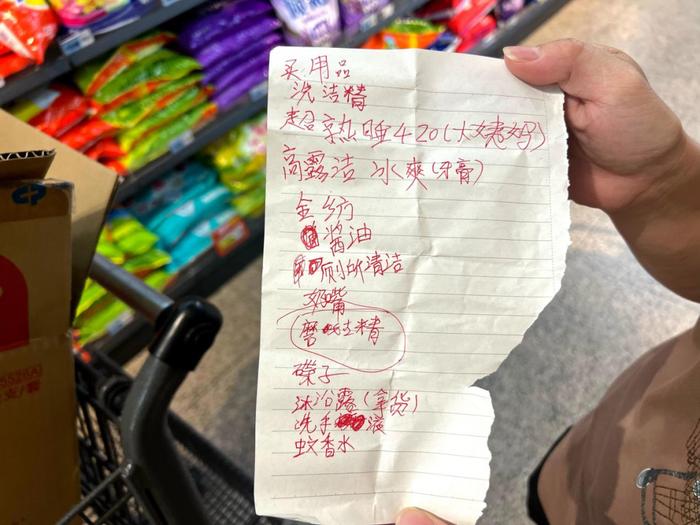 买用品
洗洁精
超熟睡420(大姨妈)
高露洁 冰爽(牙膏)
金纺
酱油
厕所清洁
奶嘴
磨 洁精
碟子
沐浴露(拿货)
洗手液
蚊香水